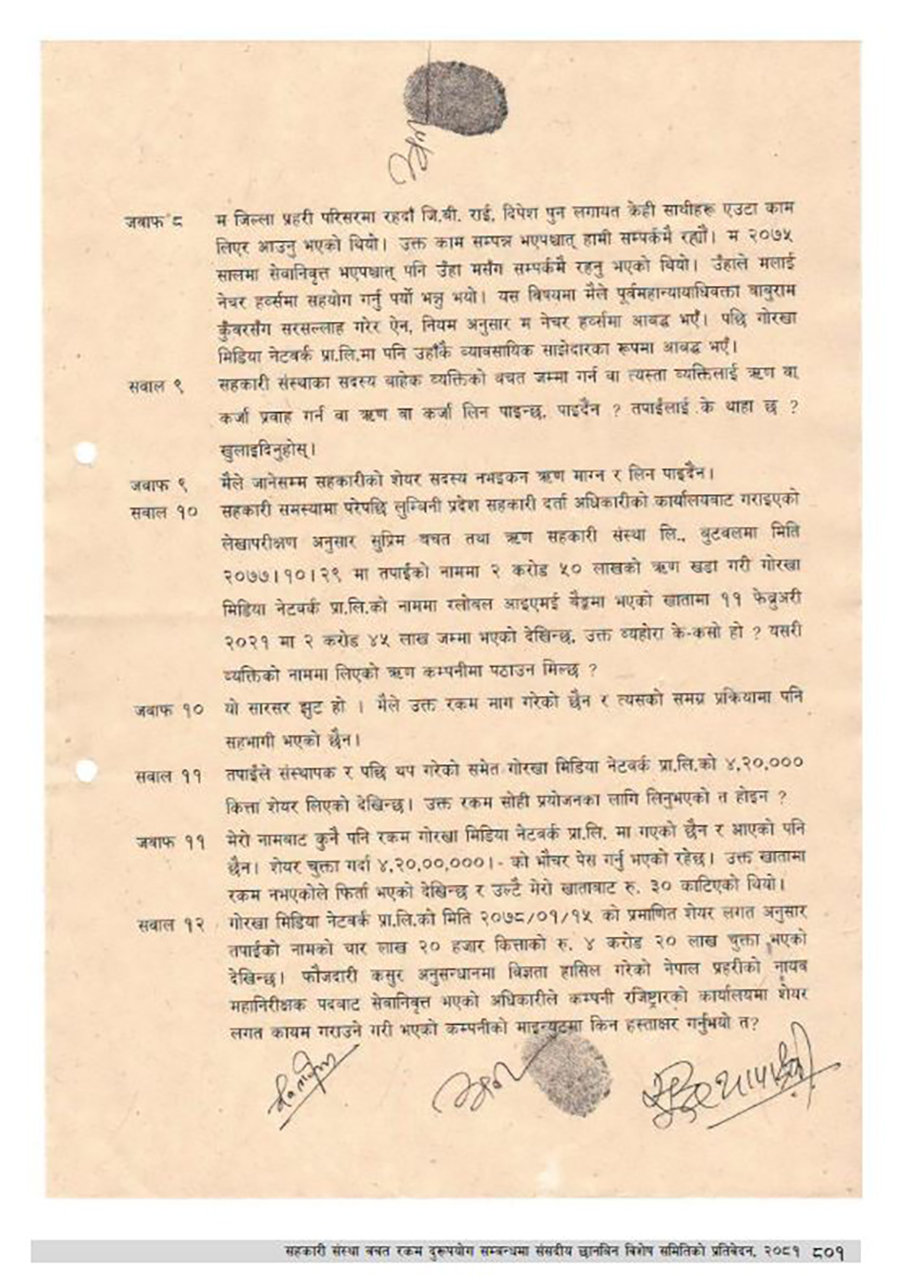 जवाफ ८ म जिल्ला प्रहरी परिसरमा रहदाँ जि.बी. राई, दिपेश पुन लगायत केही साथीहरू एउटा काम
लिएर आउनु भएको थियो। उक्त काम सम्पन्न भएपश्चात् हामी सम्पर्कमै रह्यौं। म २०७५
सालमा सेवानिवृत्त भएपश्चात् पनि उँहा मसँग सम्पर्कमै रहनु भएको थियो। उँहाले मलाई
नेचर हर्व्समा सहयोग गर्नु पर्यो भन्नु भयो। यस विषयमा मैले पूर्वमहान्यायाधिवक्ता बाबुराम
कुँवरसँग सरसल्लाह गरेर ऐन, नियम अनुसार म नेचर हर्व्समा आबद्ध भएँ। पछि गोरखा
मिडिया नेटवर्क प्रा.लि.मा पनि उहाँकै व्यावसायिक साझेदारका रूपमा आबद्ध भएँ।
सवाल ९ सहकारी संस्थाका सदस्य बाहेक व्यक्तिको बचत जम्मा गर्न वा त्यस्ता व्यक्तिलाई ऋण वा
कर्जा प्रवाह गर्न वा ऋण वा कर्जा लिन पाइन्छ, पाइदैंन ? तपाईंलाई के थाहा छ ?
खुलाइदिनुहोस्।
जवाफ ९ मैले जानेसम्म सहकारीको शेयर सदस्य नभइकन ऋण माग्न र लिन पाइदैंन।
सवाल १० सहकारी समस्यामा परेपछि लुम्बिनी प्रदेश सहकारी दर्ता अधिकारीको कार्यालयबाट गराइएको
लेखापरीक्षण अनुसार सुप्रिम बचत तथा ऋण सहकारी संस्था लि., बुटवलमा मिति
२०७७।१०।२९ मा तपाईंको नाममा २ करोड ५० लाखको ऋण खडा गरी गोरखा
मिडिया नेटवर्क प्रा.लि.को नाममा ग्लोबल आइएमई बैङ्कमा भएको खातामा ११ फेब्रुअरी
२०२१ मा २ करोड ४५ लाख जम्मा भएको देखिन्छ, उक्त व्यहोरा के-कसो हो ? यसरी
व्यक्तिको नाममा लिएको ऋण कम्पनीमा पठाउन मिल्छ ?
जवाफ १० यो सारसर झुट हो । मैले उक्त रकम माग गरेको छैन र त्यसको समग्र प्रक्रियामा पनि
सहभागी भएको छैन।
सवाल ११ तपाईंले संस्थापक र पछि थप गरेको समेत गोरखा मिडिया नेटवर्क प्रा.लि.को ४,२०,०००
कित्ता शेयर लिएको देखिन्छ। उक्त रकम सोही प्रयोजनका लागि लिनुभएको त होइन ?
जवाफ ११ मेरो नामबाट कुनै पनि रकम गोरखा मिडिया नेटवर्क प्रा.लि. मा गएको छैन र आएको पनि
छैन। शेयर चुक्ता गर्दा ४,२०,००,०००।- को भौचर पेस गर्नु भएको रहेछ। उक्त खातामा
रकम नभएकोले फिर्ता भएको देखिन्छ र उल्टै मेरो खाताबाट रु. ३० काटिएको थियो।
सवाल १२ गोरखा मिडिया नेटवर्क प्रा.लि.को मिति २०७८/०१/१५ को प्रमाणित शेयर लगत अनुसार
तपाईंको नामको चार लाख २० हजार कित्ताको रु. ४ करोड २० लाख चुक्ता भएको
देखिन्छ। फौजदारी कसुर अनुसन्धानमा विज्ञता हासिल गरेको नेपाल प्रहरीको नायब
महानिरीक्षक पदबाट सेवानिवृत्त भएको अधिकारीले कम्पनी रजिष्ट्रारको कार्यालयमा शेयर
लगत कायम गराउने गरी भएको कम्पनीको माइन्युटमा किन हस्ताक्षर गर्नुभयो त?
सहकारी संस्था बचत रकम दुरूपयोग सम्बन्धमा संसदीय छानबिन विशेष समितिको प्रतिवेदन, २०८१ ८०१